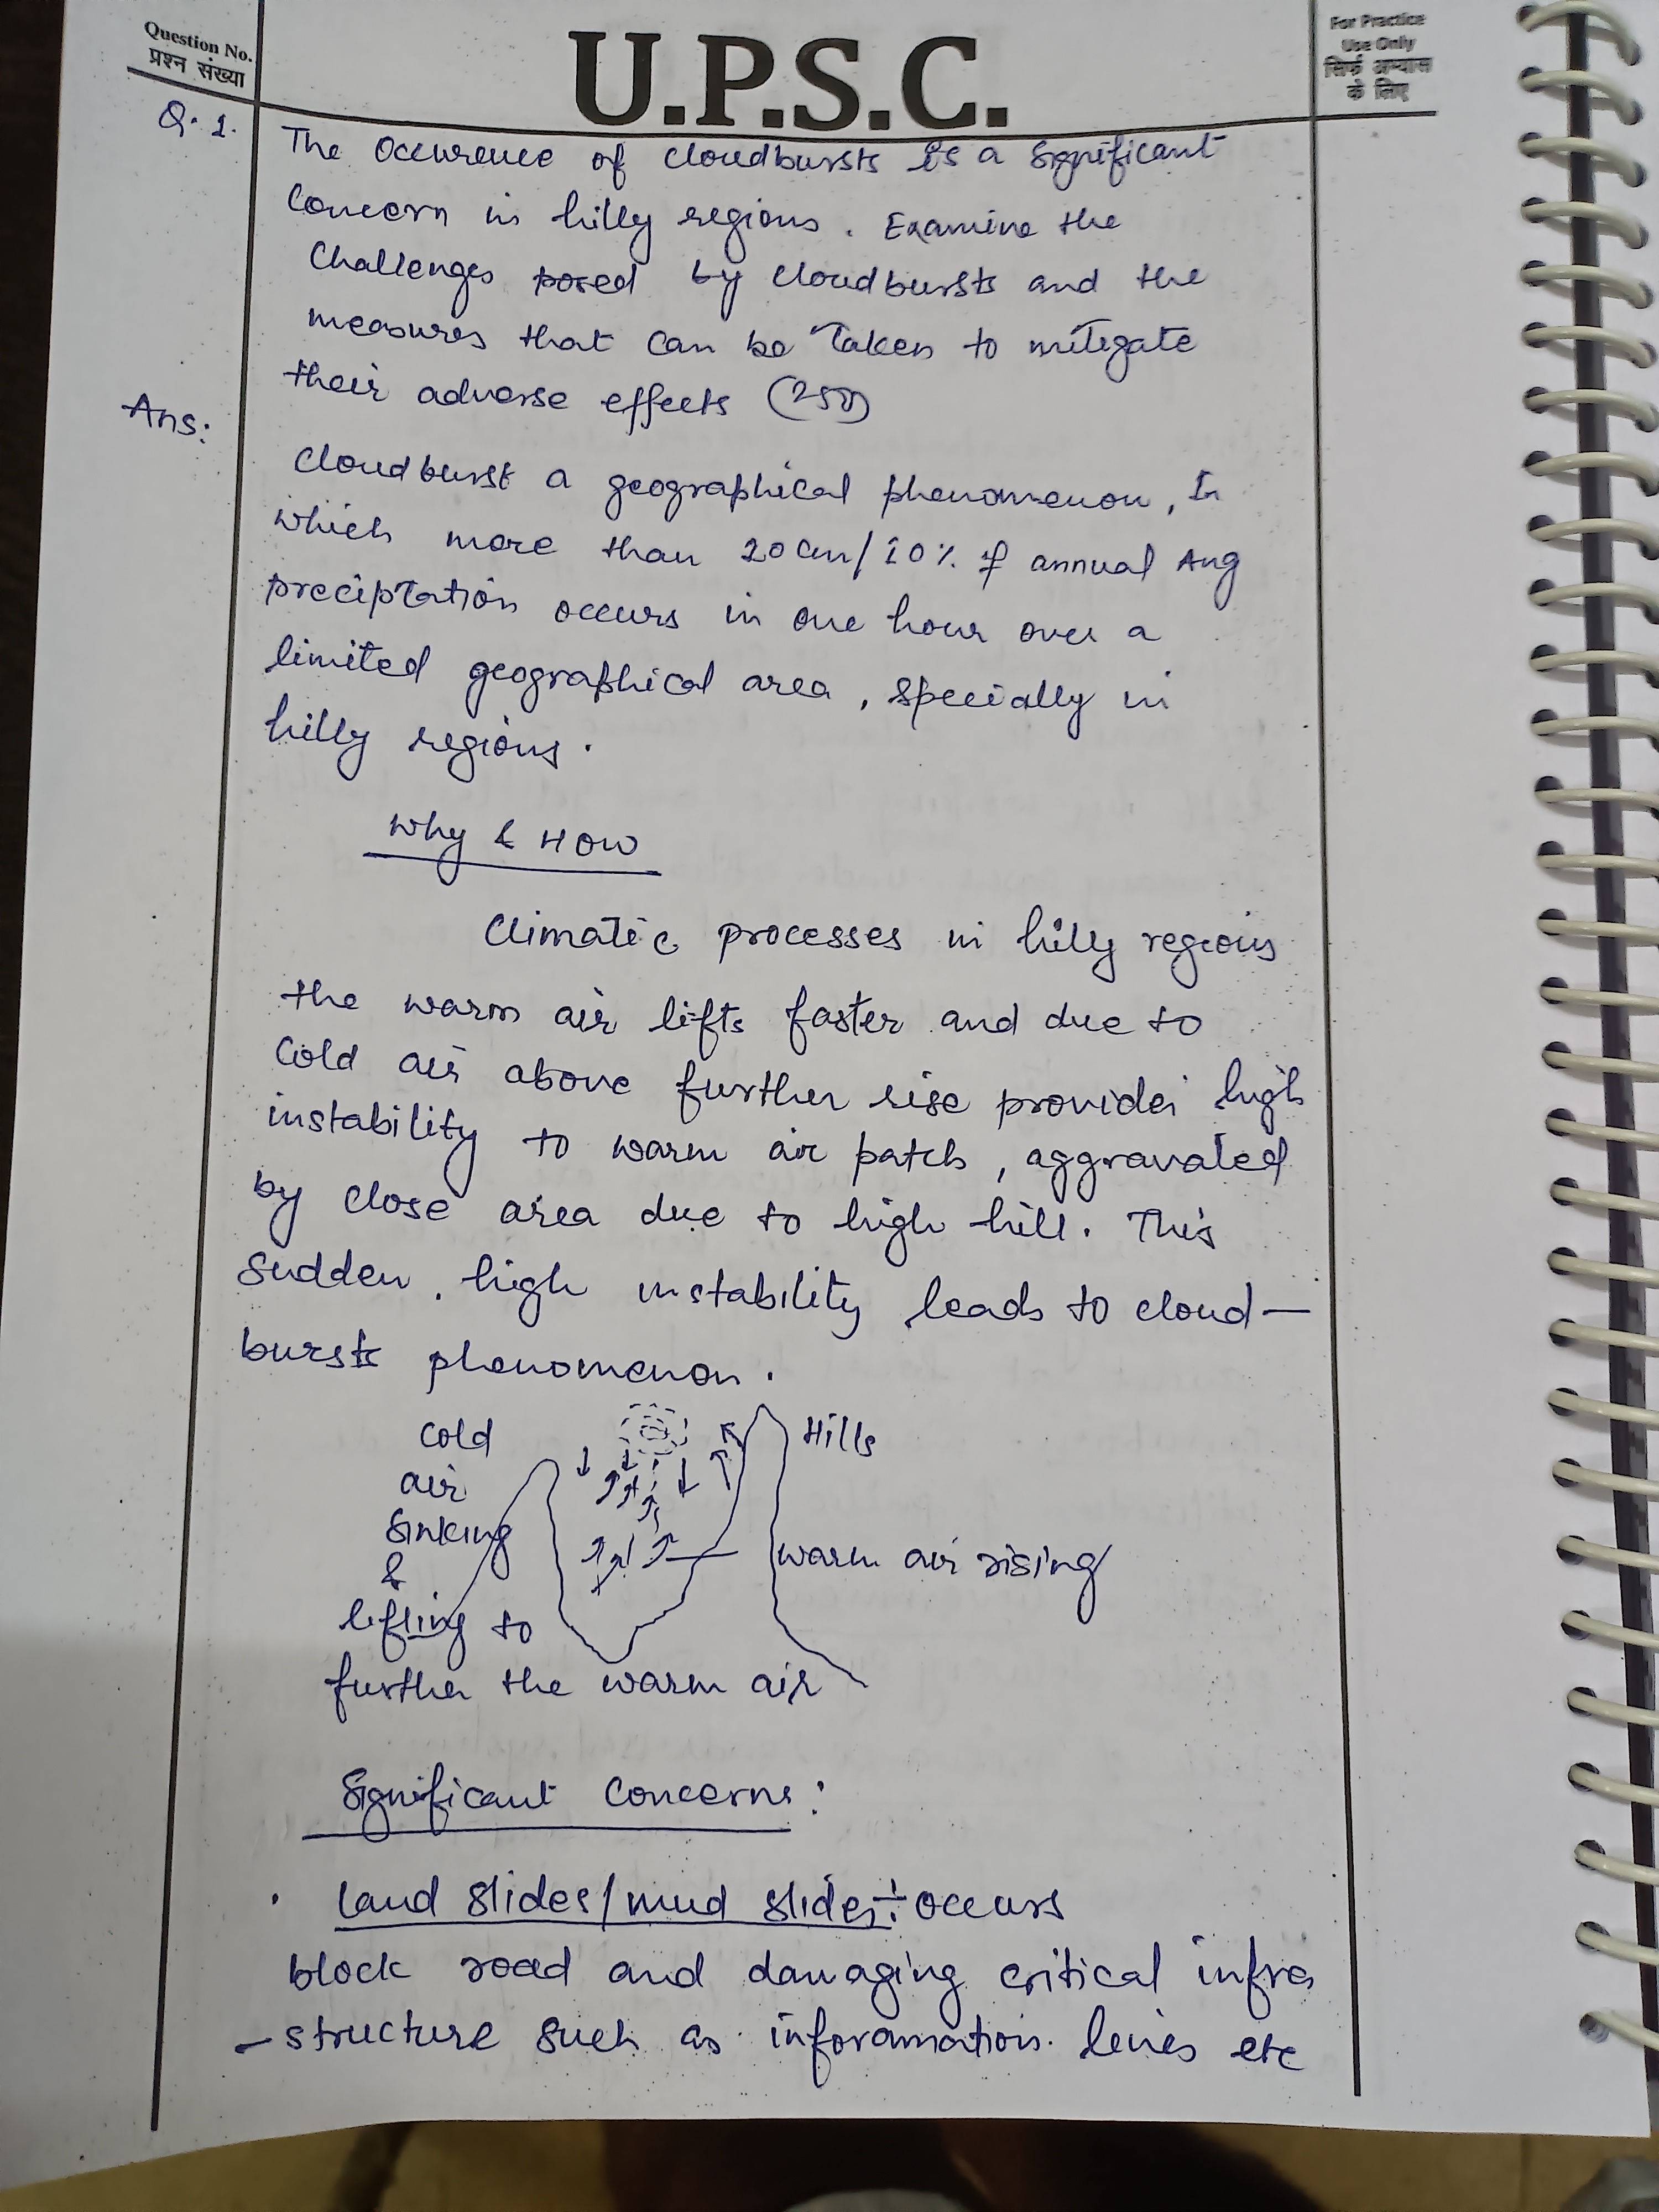 Question No.
प्रश्न संख्या
U.P.S.C.
For Practice
Use Only
सिर्फ अभ्यास
के लिए
Q. 1.
The Occurence of cloudbursts is a significant
Concern in hilly regions. Examine the
Challenges posed by cloudbursts and the
measures that can be taken to mitigate
their adverse effects (250)
Ans:
Cloudburst a geographical phenomenon, In
which more than 20cm/10% of annual Avg
precipitation occurs in one hour over a
limited geographical area, specially in
hilly regions.
Why & How
Climatic processes in hilly regions
the warm air lifts faster and due to
Cold air above further rise provides high
instability to warm air patch, aggravated
by close area due to high hill. This
Sudden, high instability leads to cloud-
bursts phenomenon.
Cold
air
Sinking
&
lifting to
further the warm air
Hills
warm air rising
Significant Concerns:
• Land Slides/mud slides: occurs
block road and damaging critical infra
-structure such as inforamation. lines etc